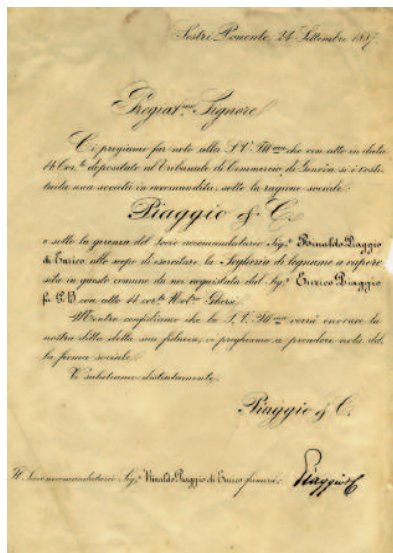 Sestri Ponente, 24 Settembre 1887.
Pregiat.mo Signore
Ci pregiamo far noto alla S.V. Ill.ma che con atto in data
14 Cor.te depositato al Tribunale di Commercio di Genova si è costi-
tuita una società in accomandita, sotto la ragione sociale:
Piaggio & C.
e sotto la gerenza del Socio accomandatario Sig.r Rinaldo Piaggio
di Enrico allo scopo di esercitare la Segheria di legname a vapore
sita in questo comune da noi acquistata dal Sig.r Enrico Piaggio
fu G.B. con atto 14 corr.te Not.ro Ghersi.
Mentre confidiamo che la S.V. Ill.ma vorrà onorare la
nostra ditta della sua fiducia, vi preghiamo a prendere nota del-
la firma sociale.
Vi salutiamo distintamente.
Piaggio & C.
Il Socio accomandatario Sig.r Rinaldo Piaggio di Enrico firmerà: Piaggio & C.